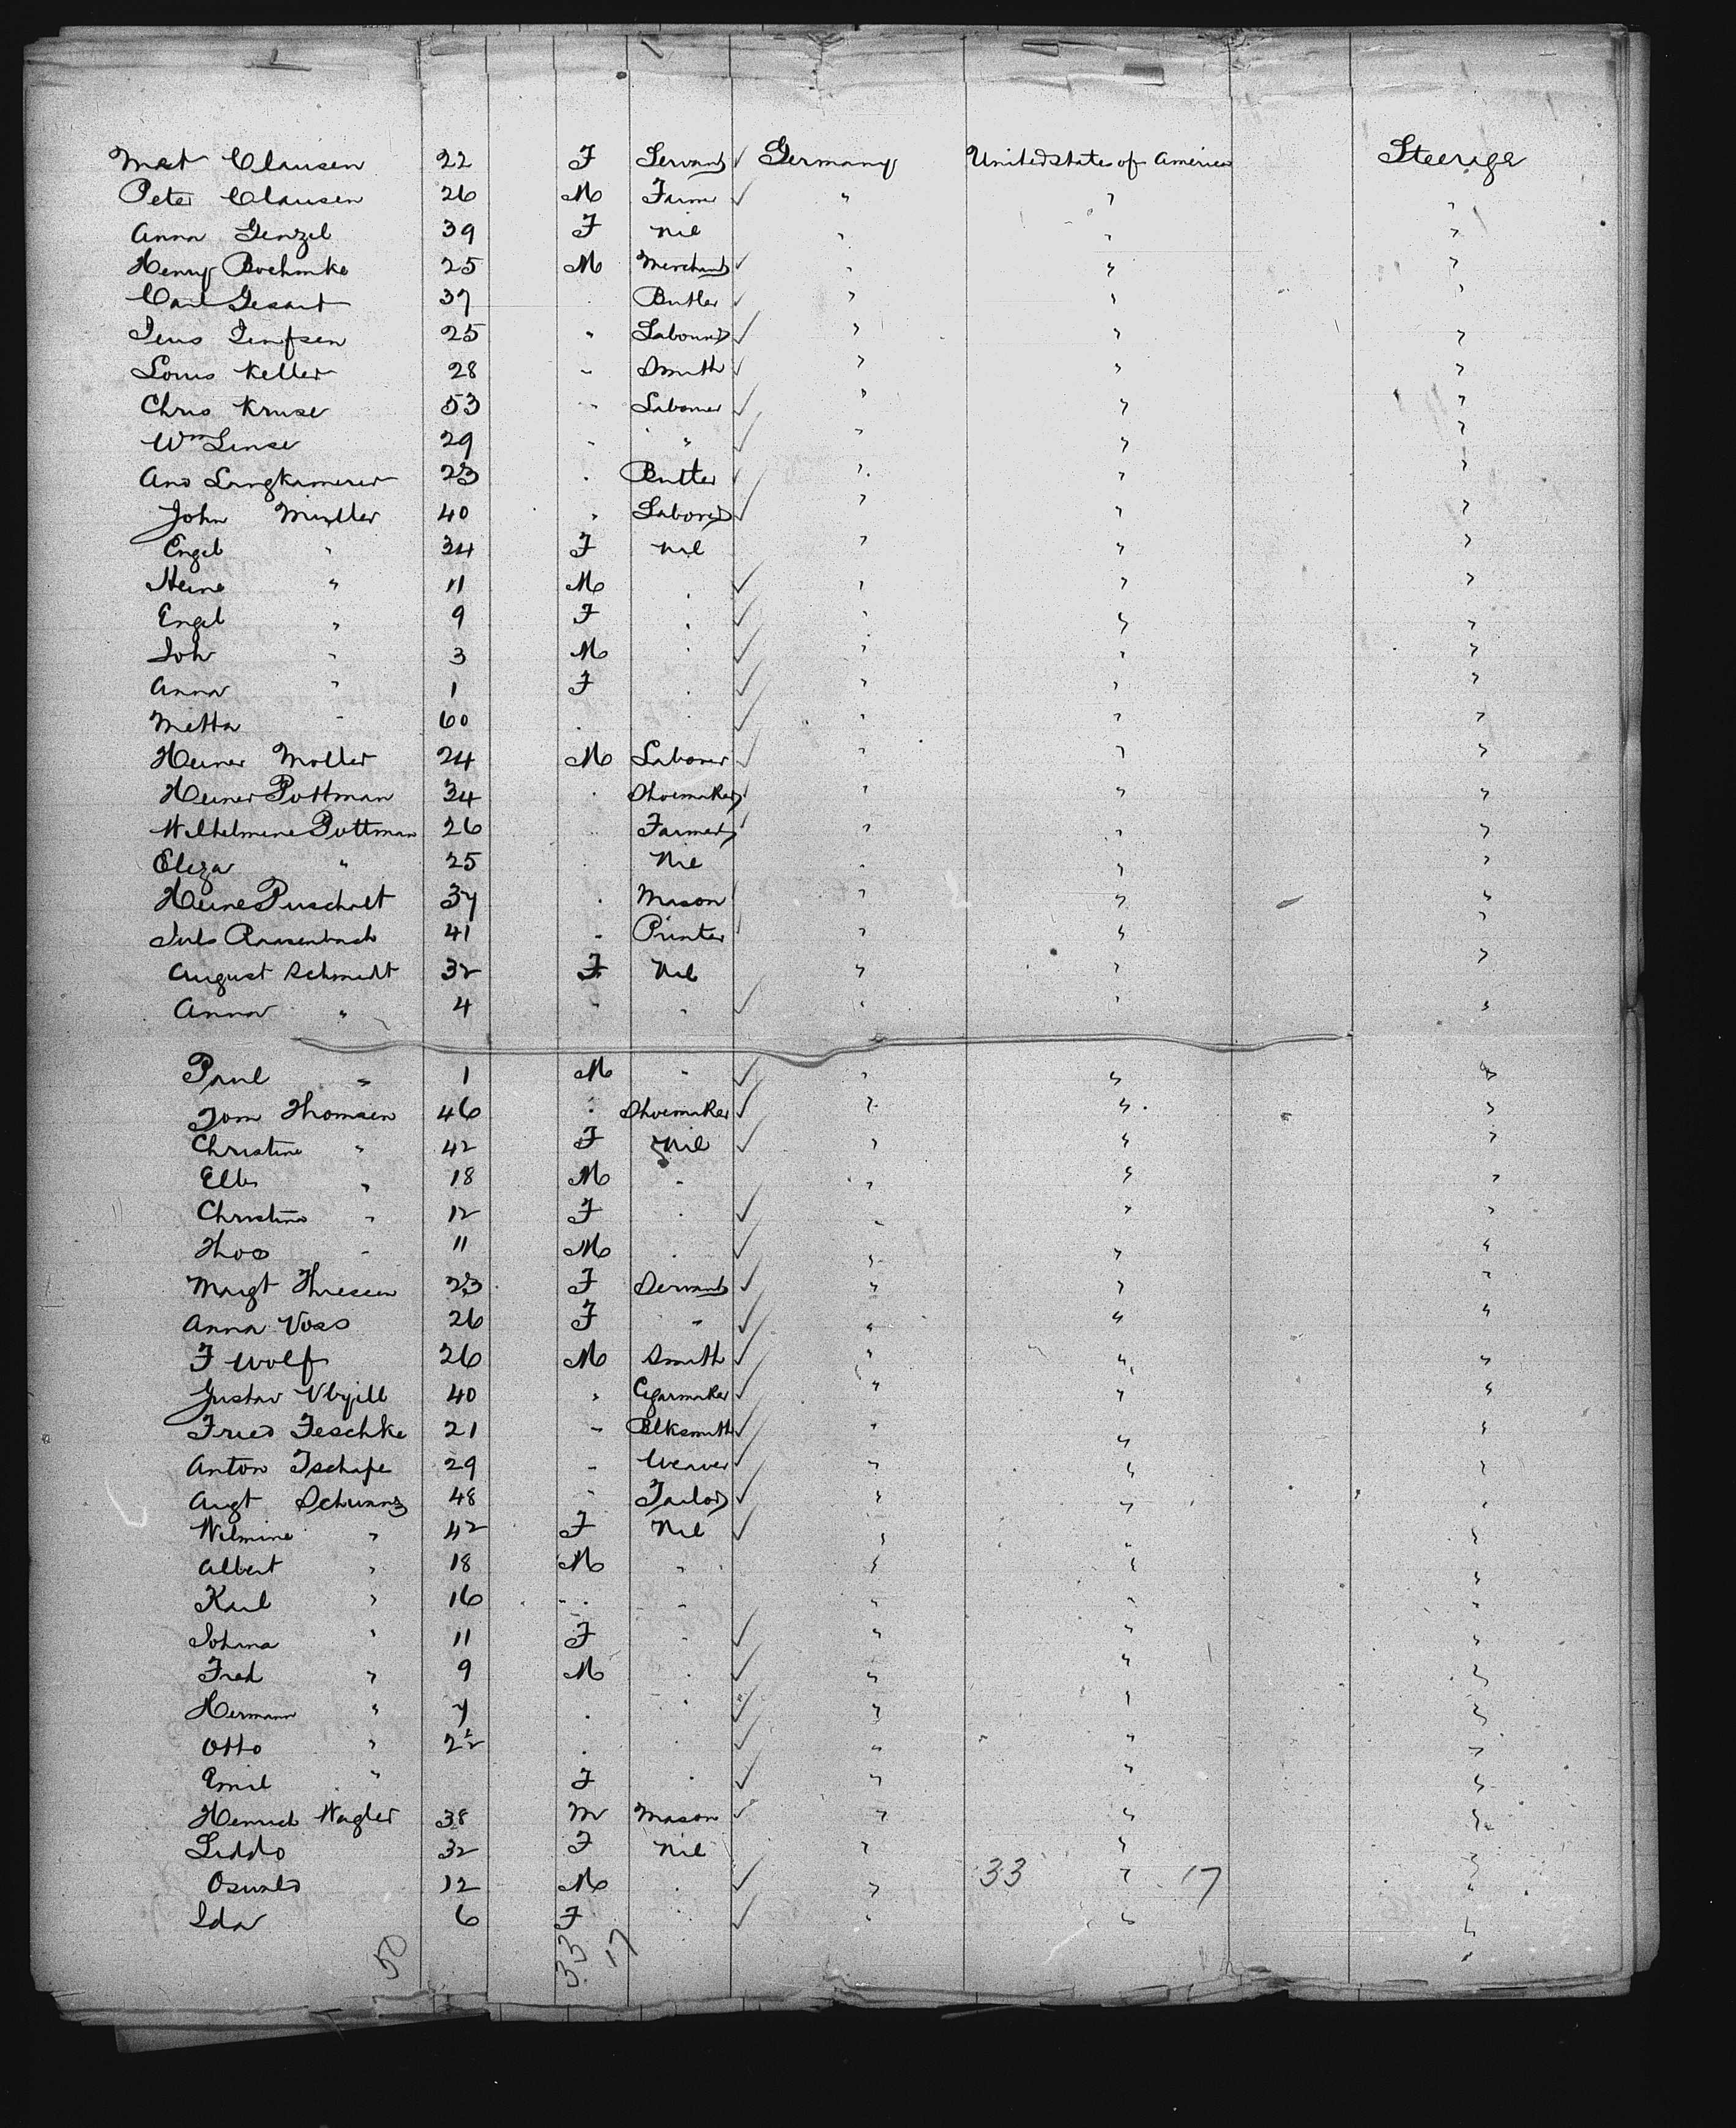 Mat Clausen 22 F Servant ✓ Germany United States of America Steerage
Peter Clausen 26 M Farmr ✓ " " "
Anna Genzel 39 F nil " " "
Henry Boehmke 25 M Merchant ✓ " " "
Carl Gesart 37 " Butler ✓ " " "
Jens Jenssen 25 " Labourer ✓ " " "
Louis Keller 28 " Smith ✓ " " "
Chris Kruse 53 " Laborer ✓ " " "
Wm Linse 29 " " ✓ " " "
And Langkamerer 23 " Butler ✓ " " "
John Muller 40 " Laborer ✓ " " "
Engel " 34 F nil " " "
Heine " 11 M " ✓ " " "
Engel " 9 F " ✓ " " "
Joh " 3 M " ✓ " " "
Anna " 1 F " ✓ " " "
Metta " 60 " " ✓ " " "
Heiner Moller 24 M Laborer ✓ " " "
Heiner Puttman 34 " Shoemaker ✓ " " "
Wilhelmine Puttman 26 " Farmer ✓ " " "
Eliza " 25 " Nil " " "
Heine Puscholt 37 " Mason " " "
Juls 41 " Printer " " "
August Schmidt 32 F Nil " " "
Anna " 4 " " ✓ " " "
Paul " 1 M " ✓ " " "
Tom Thomsen 46 " Shoemaker ✓ " " "
Christine " 42 F Nil ✓ " " "
Elbr " 18 M " " " "
Christine " 12 F " ✓ " " "
Thos " 11 M " ✓ " " "
Margt Thiessen 23 F Servant ✓ " " "
Anna Voss 26 F " ✓ " " "
F Wolf 26 M Smith ✓ " " "
Gustav 40 " Cigarmaker ✓ " " "
Fried Feschke 21 " Blksmith ✓ " " "
Anton Tschape 29 " Weaver ✓ " " "
Augt Schwanz 48 " Tailor ✓ " " "
Wilmine " 42 F Nil ✓ " " "
Albert " 18 M " " " "
Karl " 16 " " " " "
Johma " 11 F " ✓ " " "
Fred " 9 M " ✓ " " "
Hermann " 7 " " ✓ " " "
Otto " 2 " " ✓ " " "
Emil " F " ✓ " " "
Henrich Wagler 38 M Mason ✓ " " "
Liddo 32 F Nil " " "
Oswald 12 M " ✓ " 33 " 17 "
Ida 6 F " ✓ " " "
50 33 17